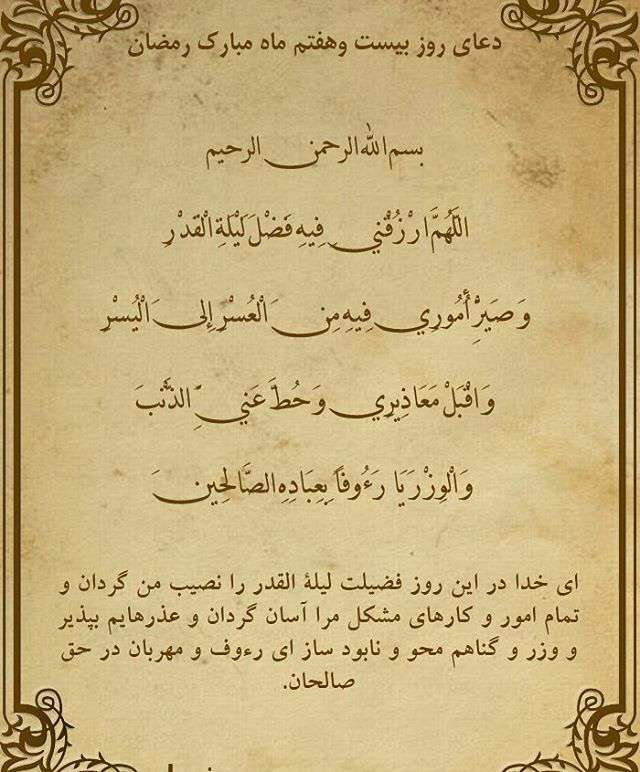 دعای روز بیست وهفتم ماه مبارک رمضان
بسم الله الرحمن الرحیم
اللَّهُمَّ ارْزُقْني فِيهِ فَضْلَ لَيْلَةِ الْقَدْرِ
وَ صَيِّرْ أُمُوري فِيهِ مِنَ الْعُسْرِ إِلى الْيُسْرِ
وَ اقْبَلْ مَعَاذِيرِي وَ حُطَّ عَنِّي الذَّنْبَ
وَ الْوِزْرَ يَا رَءُوفاً بِعِبَادِهِ الصَّالِحِينَ
ای خدا در این روز فضیلت لیلهٔ القدر را نصیب من گردان و
تمام امور و کارهای مشکل مرا آسان گردان و عذرهایم بپذیر
و وزر و گناهم محو و نابود ساز ای رءوف و مهربان در حق
صالحان.